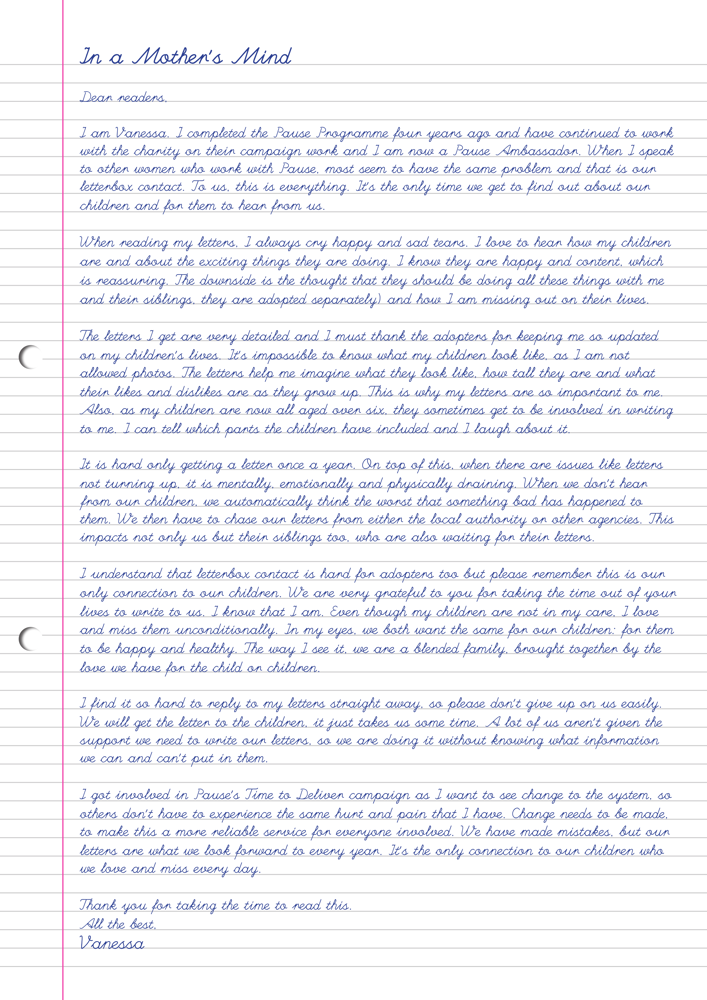 In a Mother's Mind
Dear readers,
I am Vanessa. I completed the Pause Programme four years ago and have continued to work
with the charity on their campaign work and I am now a Pause Ambassador. When I speak
to other women who work with Pause, most seem to have the same problem and that is our
letterbox contact. To us, this is everything. It's the only time we get to find out about our
children and for them to hear from us.
When reading my letters, I always cry happy and sad tears. I love to hear how my children
are and about the exciting things they are doing. I know they are happy and content, which
is reassuring. The downside is the thought that they should be doing all these things with me
and their siblings, they are adopted separately) and how I am missing out on their lives.
The letters I get are very detailed and I must thank the adopters for keeping me so updated
on my children's lives. It's impossible to know what my children look like, as I am not
allowed photos. The letters help me imagine what they look like, how tall they are and what
their likes and dislikes are as they grow up. This is why my letters are so important to me.
Also, as my children are now all aged over six, they sometimes get to be involved in writing
to me. I can tell which parts the children have included and I laugh about it.
It is hard only getting a letter once a year. On top of this, when there are issues like letters
not turning up, it is mentally, emotionally and physically draining. When we don't hear
from our children, we automatically think the worst that something bad has happened to
them. We then have to chase our letters from either the local authority or other agencies. This
impacts not only us but their siblings too, who are also waiting for their letters.
I understand that letterbox contact is hard for adopters too but please remember this is our
only connection to our children. We are very grateful to you for taking the time out of your
lives to write to us. I know that I am. Even though my children are not in my care, I love
and miss them unconditionally. In my eyes, we both want the same for our children: for them
to be happy and healthy. The way I see it, we are a blended family, brought together by the
love we have for the child or children.
I find it so hard to reply to my letters straight away, so please don't give up on us easily.
We will get the letter to the children, it just takes us some time. A lot of us aren't given the
support we need to write our letters, so we are doing it without knowing what information
we can and can't put in them.
I got involved in Pause's Time to Deliver campaign as I want to see change to the system, so
others don't have to experience the same hurt and pain that I have. Change needs to be made,
to make this a more reliable service for everyone involved. We have made mistakes, but our
letters are what we look forward to every year. It's the only connection to our children who
we love and miss every day.
Thank you for taking the time to read this.
All the best,
Vanessa